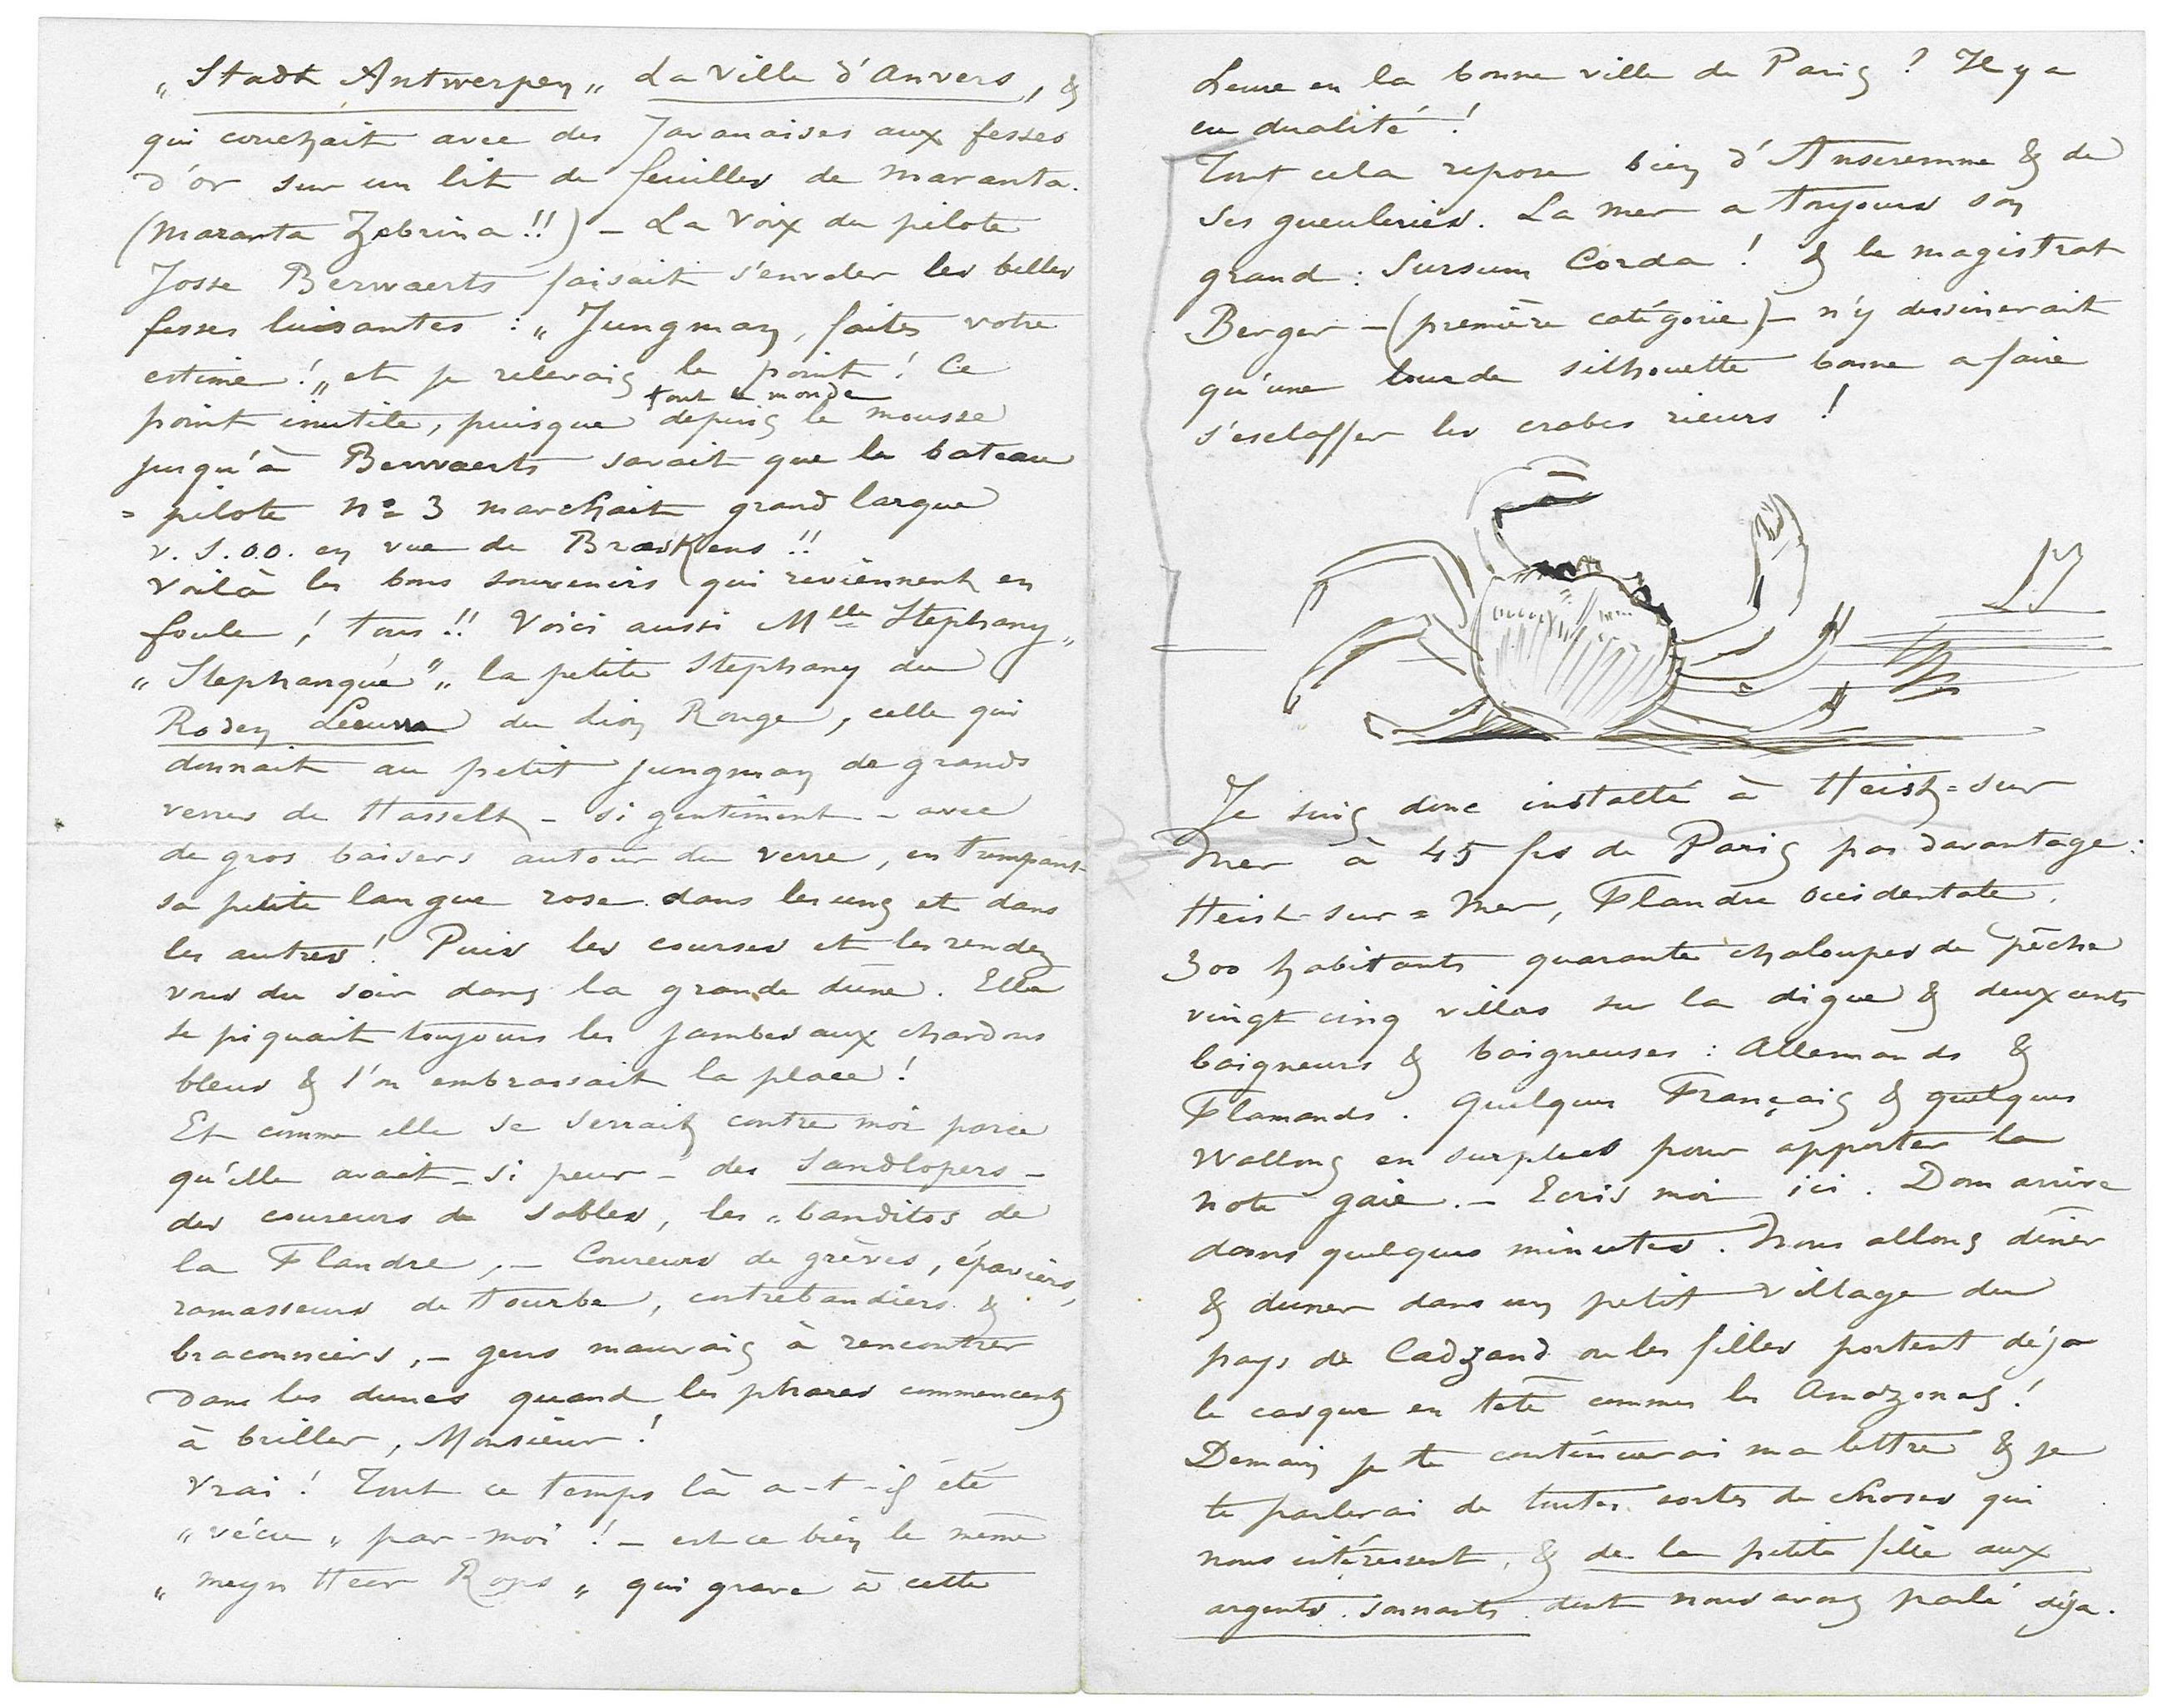 „Stadt Antwerpen„ La Ville d'Anvers, &
qui couchait avec des Javanaises aux fesses
d'or sur un lit de feuilles de maranta.
(Maranta Zebrina!!) – La Voix du pilote
Josse Berwaerts faisait s'envoler les belles
fesses luisantes : „Jungman, faites votre
estime!„ et je relevais le point! Ce
point inutile, puisque tout le monde depuis le mousse
jusqu'à Berwaerts savait que le bateau
= pilote nº 3 marchait grand largue
v. S.O.O. en vue de Breskens!!
Voilà les bons souvenirs qui reviennent en
foule! tous!! Voici aussi Mlle Stephany„
„Stephanque"„ la petite Stephany du
Roden Leeuw du Lion Rouge, celle qui
donnait au petit jungman de grands
verres de Hasselt – si gentiment – avec
de gros baisers autour du verre, en trempant
sa petite langue rose dans les uns et dans
les autres! Puis les courses et les rendez
vous du soir dans la grande dune. Elle
se piquait toujours les jambes aux chardons
bleus & l'on embrassait la place!
Et comme elle se serrait contre moi parce
qu'elle avait – si peur – des Sandlopers –
des coureurs de sables, les „banditos de
la Flandre, – Coureurs de grèves, épaviers,
ramasseurs de tourbe, contrebandiers &
braconniers, – gens mauvais à rencontrer
dans les dunes quand les phares commencent
à briller, Monsieur!
Vrai! Tout ce temps là a-t-il été
„vécu„ par-moi! – est-ce bien le même
„meyn Heer Rops„ qui grave à cette
heure en la bonne ville de Paris? Il y a
eu dualité!
Tout cela repose bien d'Anseremme & de
ses gueuleries. La mer a toujours son
grand : Sursum Corda! & le magistrat
Berger – (première catégorie) – n'y dessinerait
qu'une lourde silhouette bonne a faire
s'esclaffer les crabes rieurs!
Je suis donc installé à Heist=sur
Mer à 45 frs de Paris pas davantage :
Heist-sur=Mer, Flandre Occidentale.
300 habitants quarante chaloupes de pêche
vingt cinq villas sur la digue & deux cents
baigneurs & baigneuses : Allemands &
Flamands. Quelques Français & quelques
Wallons en surplus pour apporter la
note gaie. – Ecris moi ici. Dom arrive
dans quelques minutes. Nous allons dîner
& duner dans un petit village du
pays de Cadzand ou les filles portent déja
le casque en tête comme les Amazones!
Demain je te continuerai ma lettre & je
te parlerai de toutes sortes de choses qui
nous intéressent, & de la petite fille aux
argents sonnants dont nous avons parlé déja.